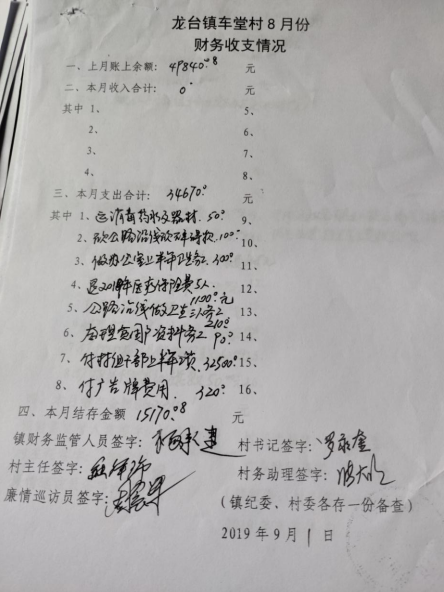 龙台镇车堂村8月份
财务收支情况
一、上月账上余额：49840.08 元
二、本月收入合计：0 元
其中 1、 5、
2、 6、
3、 7、
4、 8、
三、本月支出合计：34670.0 元
其中 1、运消毒药水及器材.50.0 9、
2、砍公路沿线 100.0 10、
3、做办公室上半年卫生务工 300.0 11、
4、退2019年医疗保险费5人. 12、
5、公路沿线做卫生 务工 1100.0元 13、
6、 贫困户资料务工 210.0 90.0 14、
7、付村组干部上半年 32500.0 15、
8、付广告牌费用 320.0 16、
四、本月结存金额 15170.08 元
镇财务监管人员签字： 村书记签字：
村主任签字： 村务助理签字：
廉情巡访员签字： （镇纪委、村委各存一份备查）
2019年9月1日